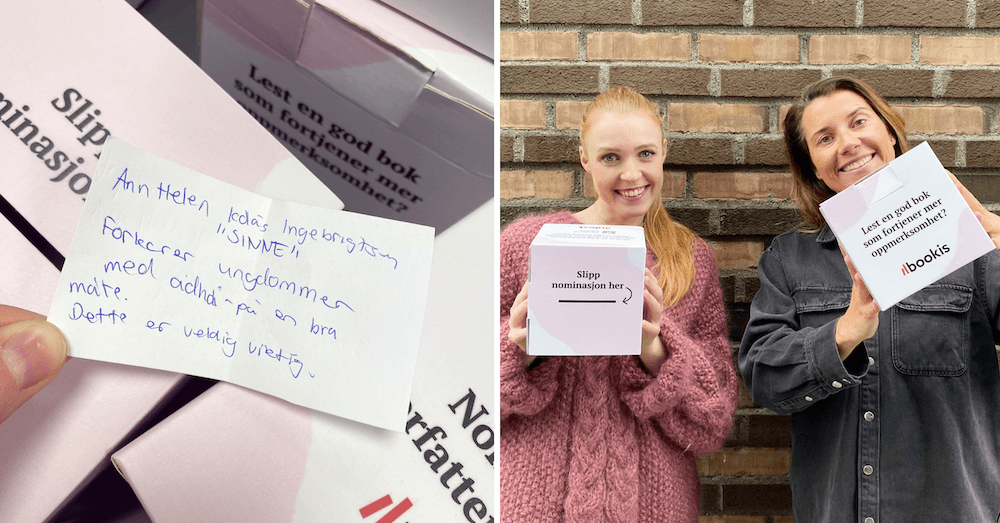 Slipp
ominasjon
Lest en god bok
som fortjener mer
oppmerksomhet?
Ann Helen Kolås Ingebrigtsen
"SINNE"
Forkarer ungdommer
med adhd-på en bra
måte.
Dette er veldig viktig.
No
rfatte
Slipp
nominasjon her
Lest en god bok
som fortjener mer
oppmerksomhet?
bookis